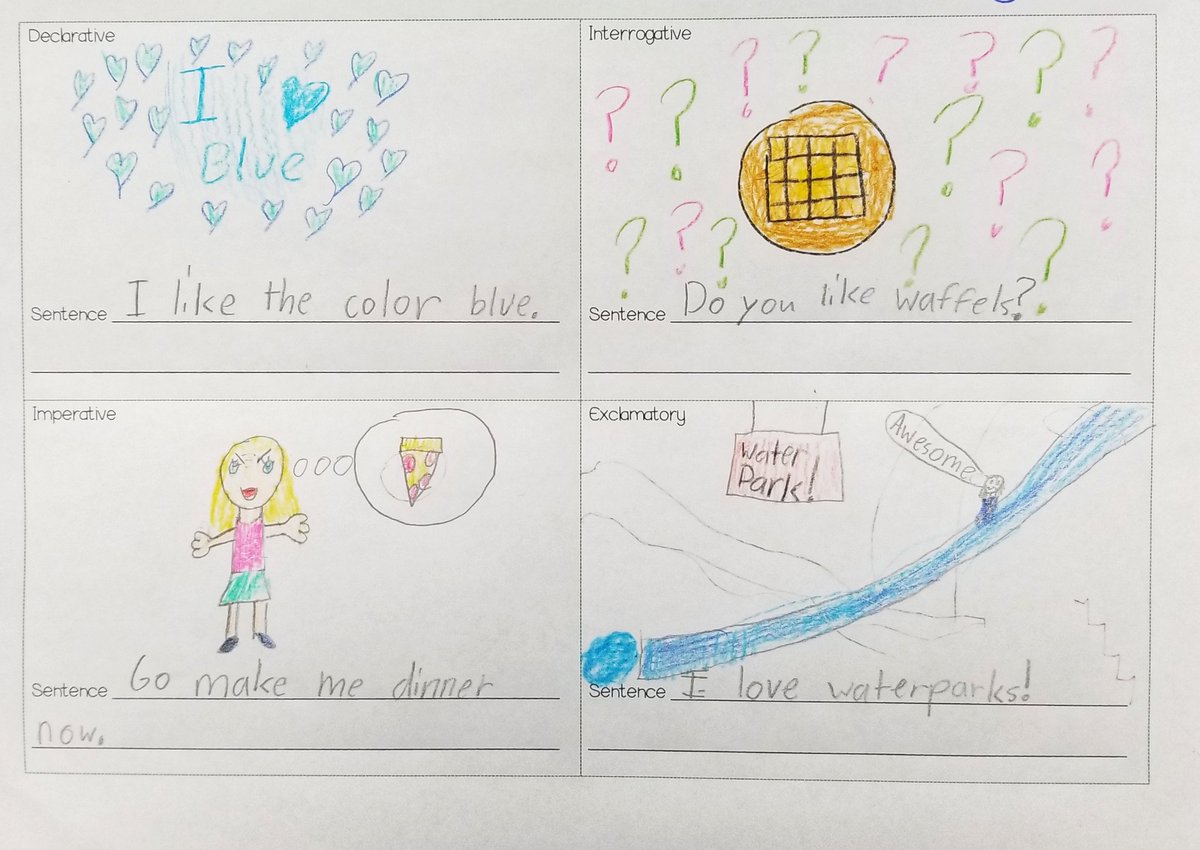 Declarative
I
Blue
Sentence I like the color blue.
Interrogative
? ? ? ? ? ? ? ? ? ? ? ? ? ? ? ?
Sentence Do you like waffels?
Imperative
Sentence Go make me dinner
now.
Exclamatory
Water
Park!
Awesome
Sentence I love waterparks!